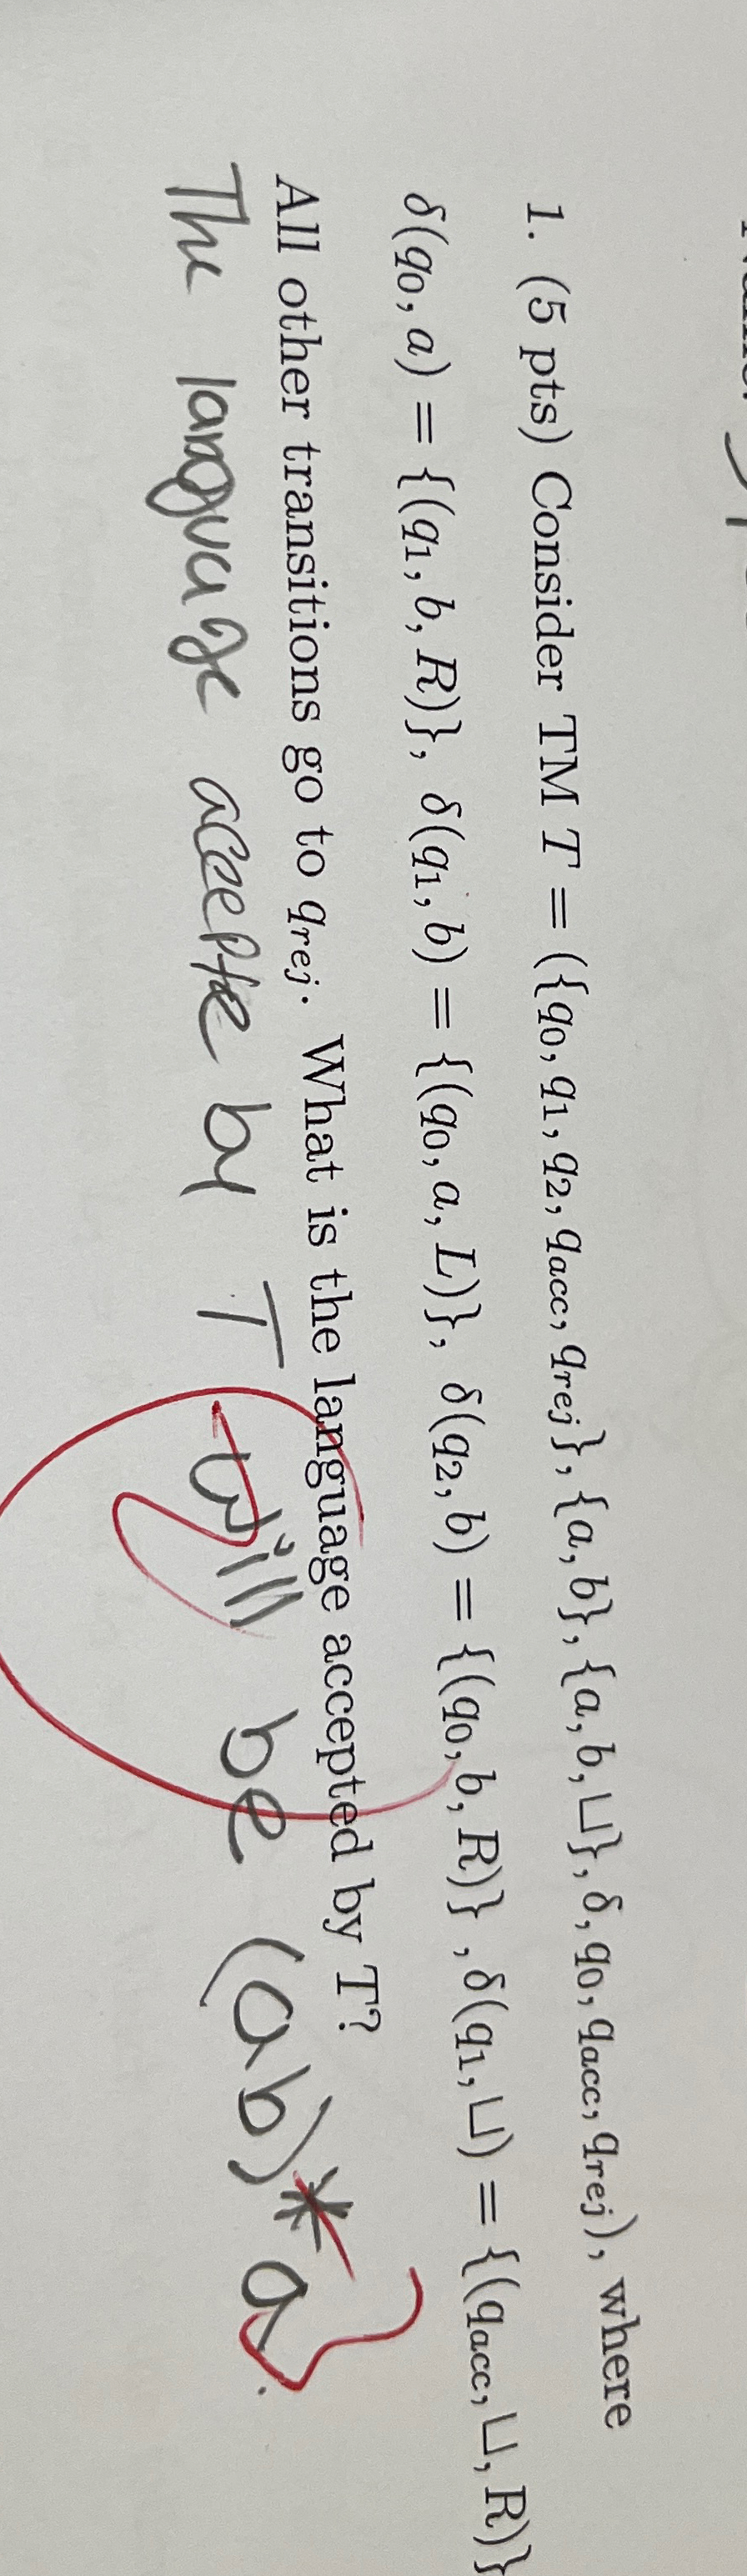 1. (5 pts) Consider TM T = ({q₀, q₁, q₂, q_acc, q_rej}, {a, b}, {a, b, ⊔}, δ, q₀, q_acc, q_rej), where
δ(q₀, a) = {(q₁, b, R)}, δ(q₁, b) = {(q₀, a, L)}, δ(q₂, b) = {(q₀, b, R)} , δ(q₁, ⊔) = {(q_acc, ⊔, R)}
All other transitions go to q_rej. What is the language accepted by T?
The language accepte by T will be (ab)*a.